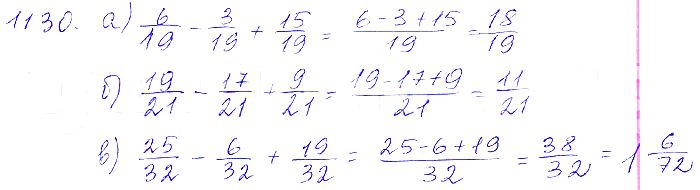 1130. а) 6/19 - 3/19 + 15/19 = (6-3+15)/19 = 18/19
б) 19/21 - 17/21 + 9/21 = (19-17+9)/21 = 11/21
в) 25/32 - 6/32 + 19/32 = (25-6+19)/32 = 38/32 = 1 6/72